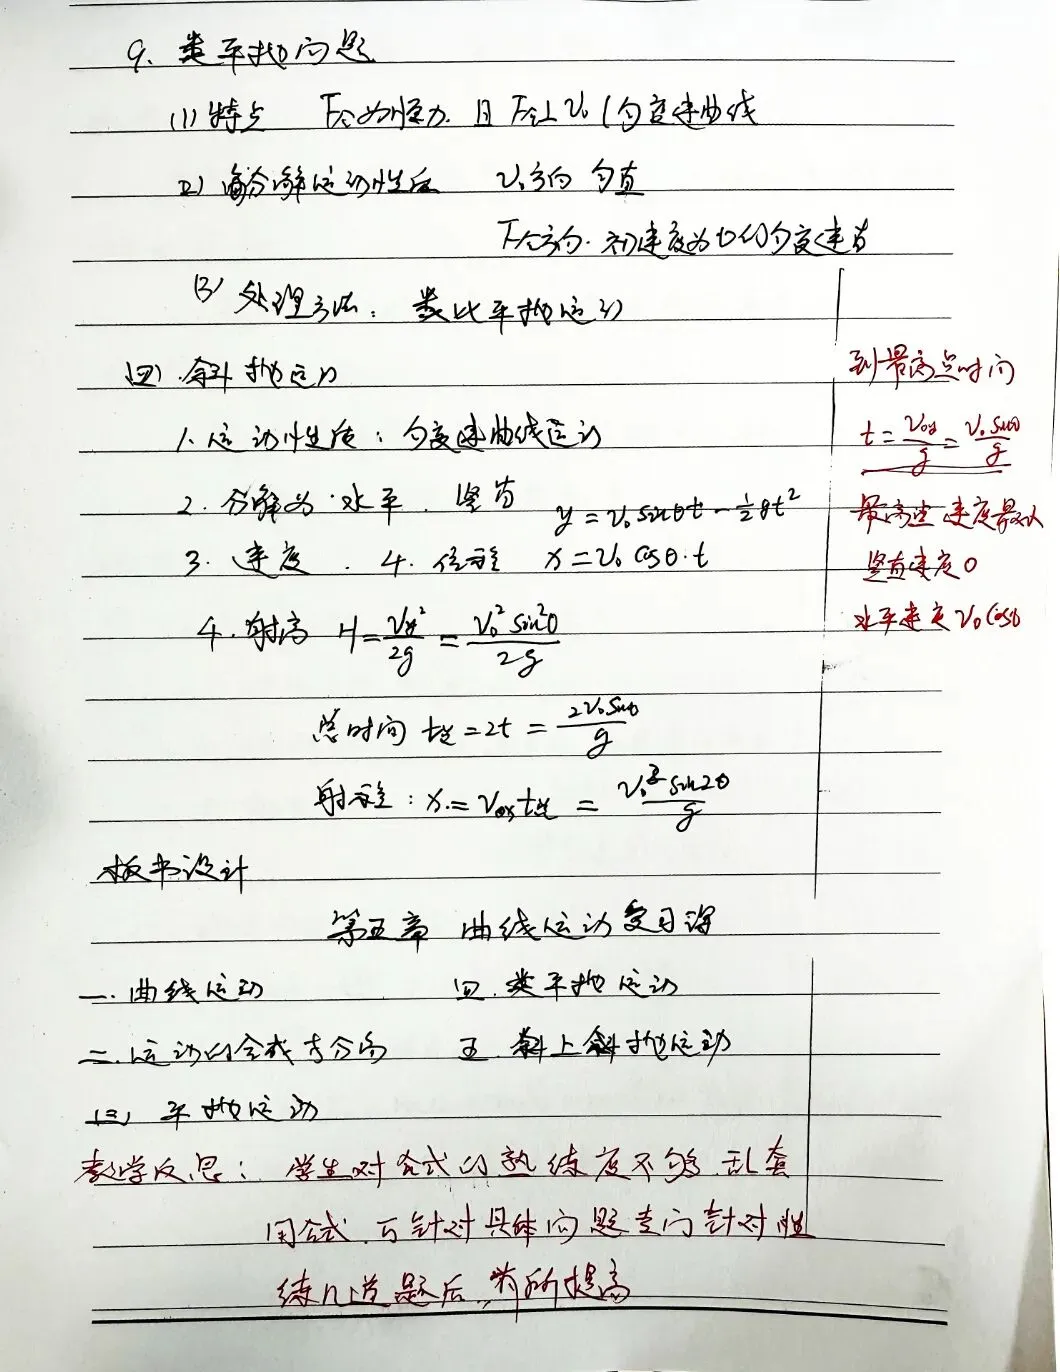 9. 类平抛问题
(1) 特点 F合为恒力 且 F合⊥V₀ (匀变速曲线
(2) 分解运动性质 V₀方向 匀直
F合方向. 初速度为0的匀变速直
(3) 处理方法: 类比平抛运动
(四) 斜抛运动
1. 运动性质: 匀变速曲线运动
2. 分解为 水平. 竖直 y=V₀sinθt-½gt²
3. 速度. 4. 位移 x=V₀cosθ·t
4. 射高 H=Vy²/2g=V₀²sin²θ/2g
总时间 t总=2t=2V₀sinθ/g
射程: x=V₀ₓt总=V₀²sin2θ/g
到最高点时间
t=V₀y/g=V₀sinθ/g
最高点速度最小
竖直速度0
水平速度V₀cosθ
板书设计
第五章 曲线运动复习课
一. 曲线运动 四. 类平抛运动
二. 运动的合成与分解 五. 斜上斜抛运动
(三) 平抛运动
教学反思: 学生对公式的熟练度不够 乱套
用公式. 可针对具体问题专门针对性
练几道题后, 有所提高